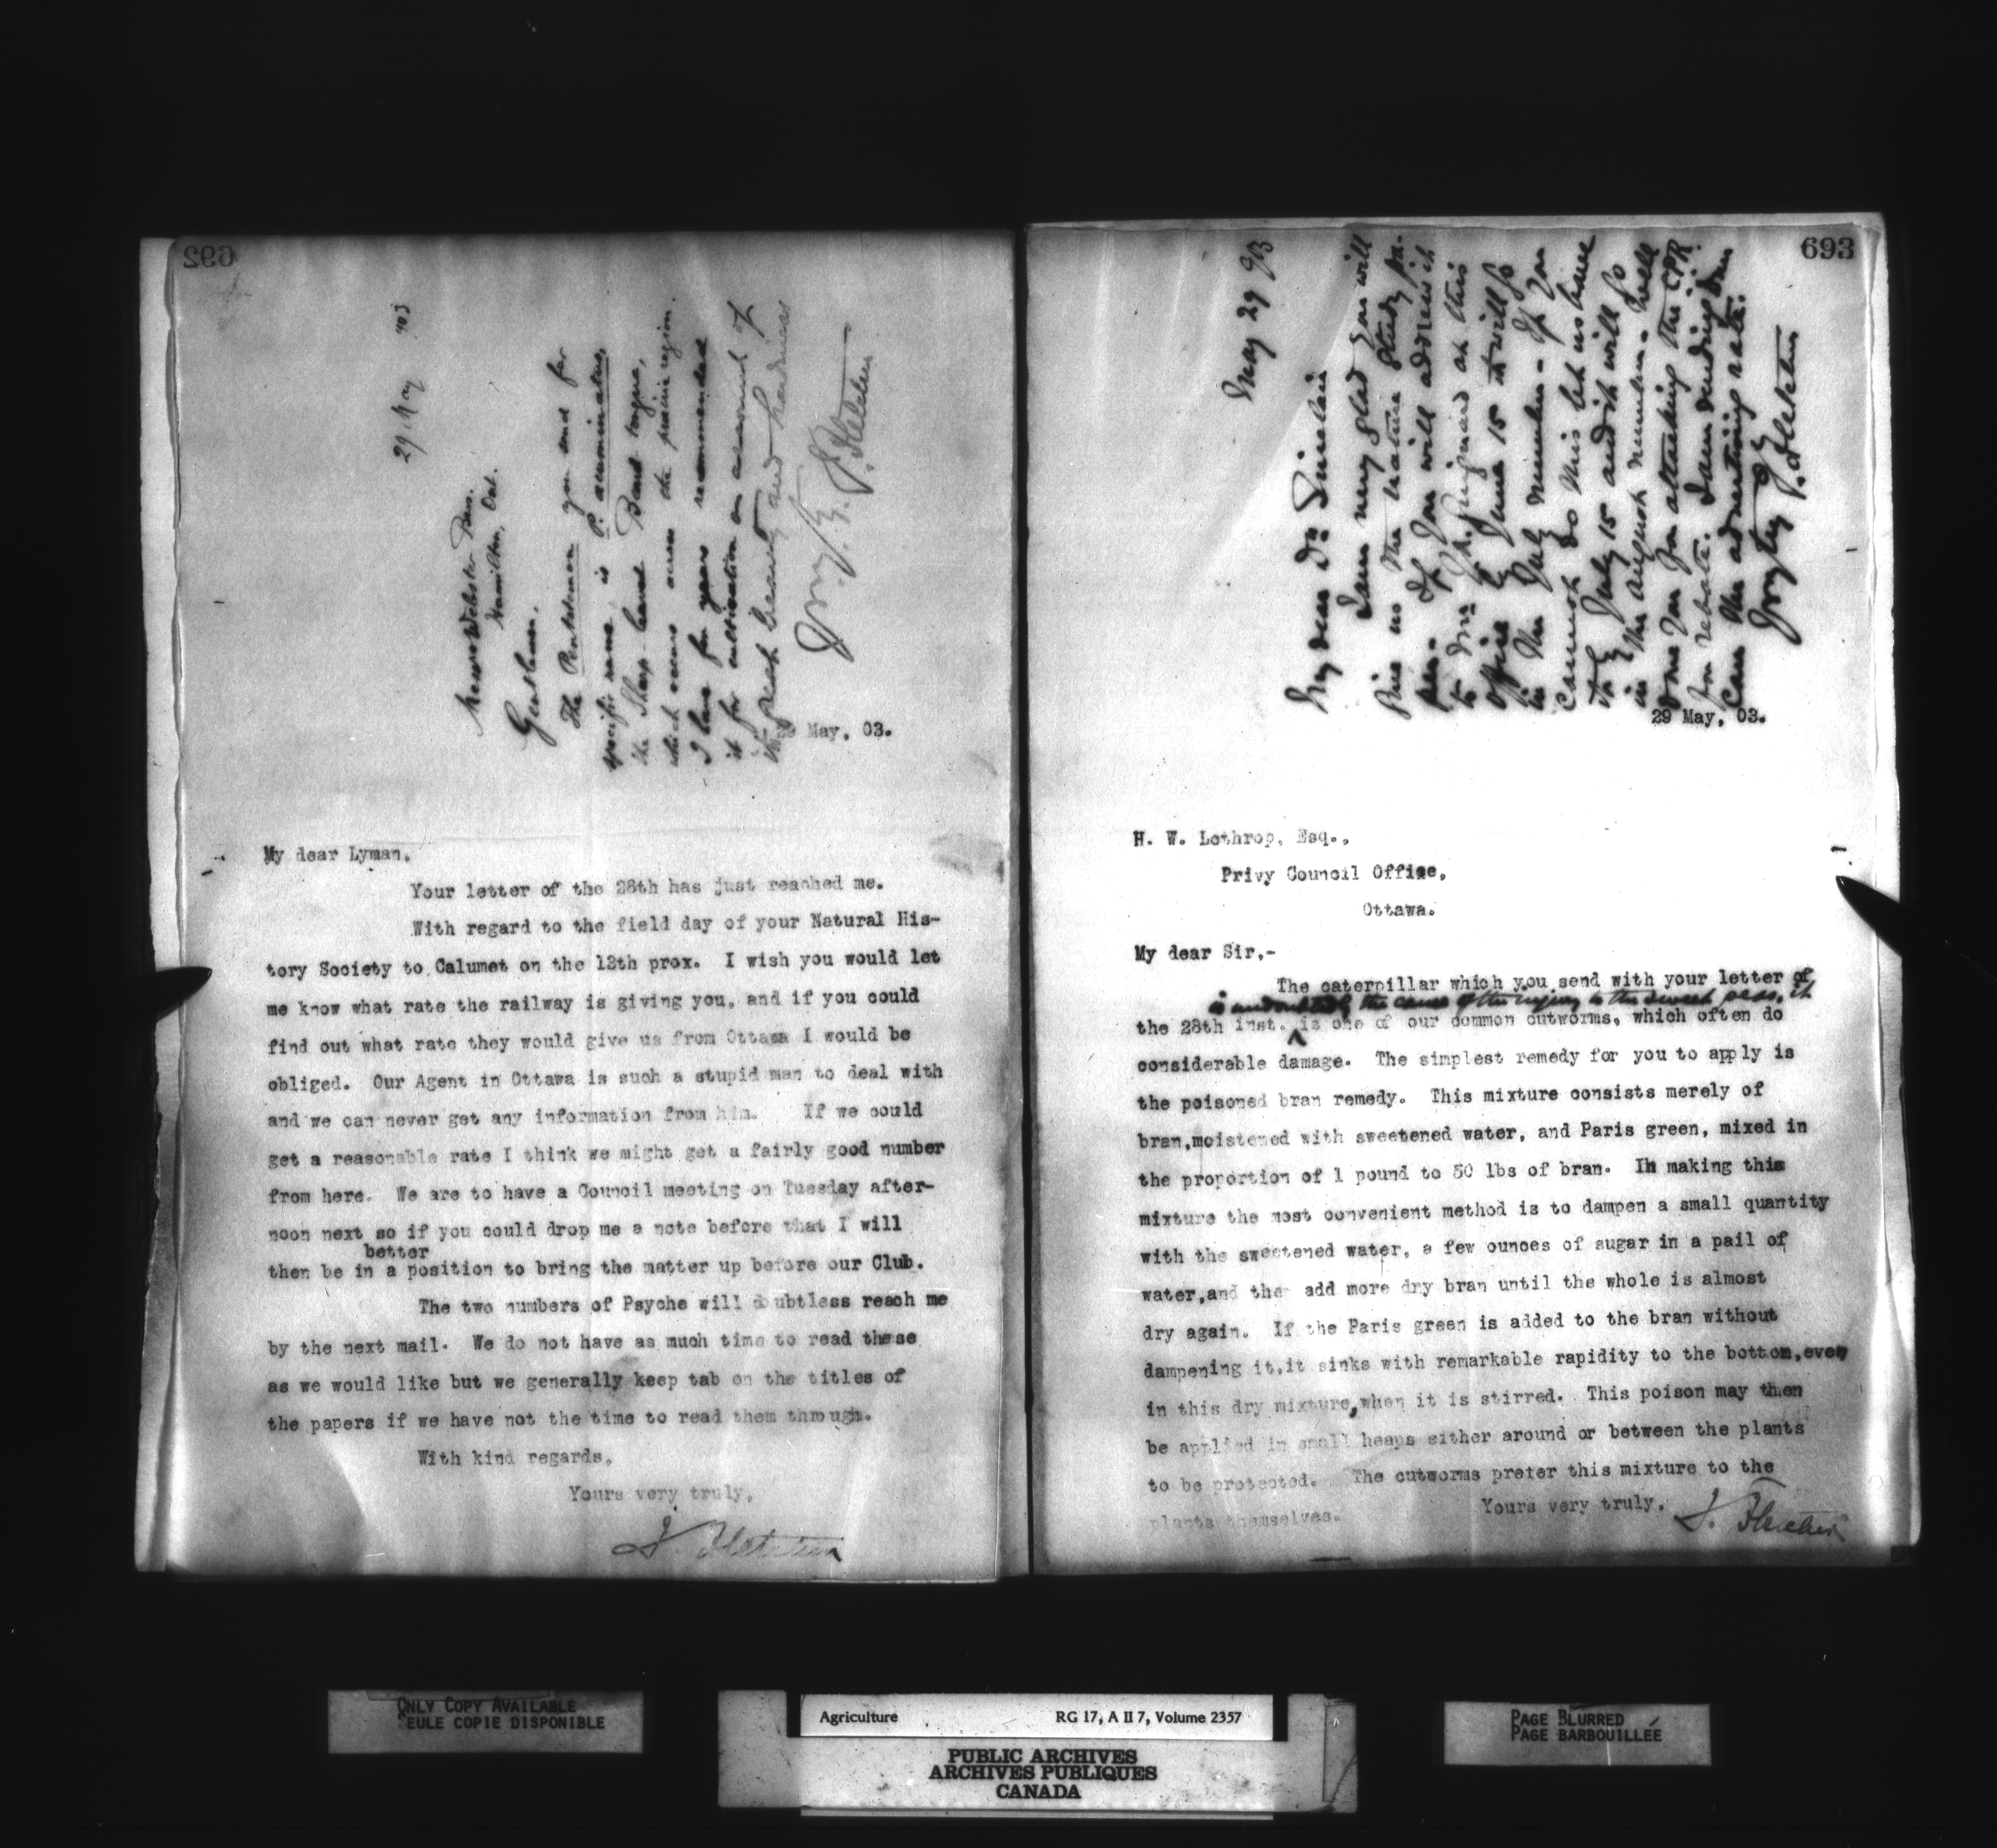 692
29 May 903
Messrs Webster Bros.
Hamilton, Ont.
Gentlemen.
The Pentstemon you send for
specific name is P. acuminatus,
the Sharp-leaved Beard tongue,
which occurs across the prairie region.
I have for years recommended
it for cultivation on account of
its great beauty and hardiness
J. Fletcher
29 May, 03.
My dear Lyman,
Your letter of the 28th has just reached me.
With regard to the field day of your Natural His-
tory Society to Calumet on the 13th prox. I wish you would let
me know what rate the railway is giving you, and if you could
find out what rate they would give us from Ottawa I would be
obliged. Our Agent in Ottawa is such a stupid man to deal with
and we can never get any information from him. If we could
get a reasonable rate I think we might get a fairly good number
from here. We are to have a Council meeting on Tuesday after-
noon next so if you could drop me a note before that I will
better
then be in a position to bring the matter up before our Club.
The two numbers of Psyche will doubtless reach me
by the next mail. We do not have as much time to read these
as we would like but we generally keep tab on the titles of
the papers if we have not the time to read them through.
With kind regards,
Yours very truly,
J. Fletcher
693
May 29 903
My dear Dr. Sinclair
I am very glad you will
give us the nature study pa-
per. If you will address it
to Mr. at this
office by June 15 it will go
in the July number. If you
cannot do this let us have
it by July 15 and it will go
in the August number. Well
done you for attacking the C.P.R.
for rebate. I am sending you
can the advertising rate.
J. Fletcher
29 May, 03.
H. W. Lothrop, Esq.,
Privy Council Office,
Ottawa.
My dear Sir,-
The caterpillar which you send with your letter of
is undoubtedly the cause of the injury to the sweet peas, it
the 28th inst. is one of our common cutworms, which often do
considerable damage. The simplest remedy for you to apply is
the poisoned bran remedy. This mixture consists merely of
bran,moistened with sweetened water, and Paris green, mixed in
the proportion of 1 pound to 50 lbs of bran. In making this
mixture the most convenient method is to dampen a small quantity
with the sweetened water, a few ounces of sugar in a pail of
water,and then add more dry bran until the whole is almost
dry again. If the Paris green is added to the bran without
dampening it,it sinks with remarkable rapidity to the bottom,even
in this dry mixture,when it is stirred. This poison may then
be applied in small heaps either around or between the plants
to be protected. The cutworms prefer this mixture to the
plants themselves.
Yours very truly,
J. Fletcher
ONLY COPY AVAILABLE
SEULE COPIE DISPONIBLE
Agriculture RG 17, A II 7, Volume 2357
PUBLIC ARCHIVES
ARCHIVES PUBLIQUES
CANADA
PAGE BLURRED
PAGE BARBOUILLÉE